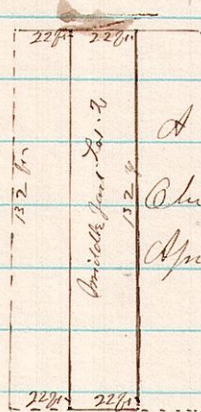 22ft 22ft
132 ft
Middle Lot 2
132 ft
A
Apr
22ft 22ft